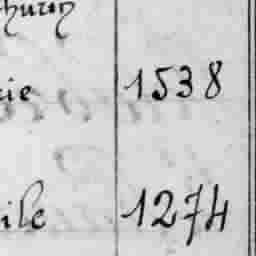 thurin
cie 1538
ile 1274